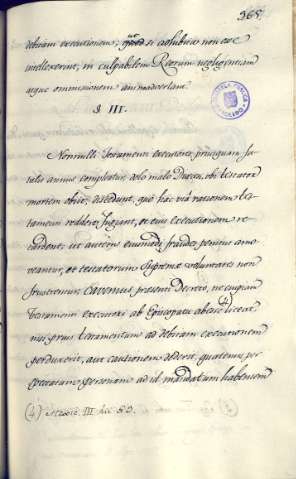 365.
debitam executionem,
intellexerint, in culpabilem Reorum negligentiam
atque omissionem animadvertant.
§ III.
Nonnulli Testamenti executores priusquam
annus compleatur, dolo malo Ducti, ubi testator
mortem obiit, discedunt, quo hac via rationem tes-
tamenti reddere fugiant, et eius executionem re-
tardent: ut autem eiusmodi fraudes penitus amo-
veantur, et testatorum Supremæ voluntates non
frustrentur; Cavemus presenti Decreto, ne cuipiam
testamenti executori ab Episcopatu abire liceat (4)
nisi prius testamentum ad debitam executionem
perduxerit, aut cautionem dederit, quatenus per
personam ad id mandatum habentem
(4) III